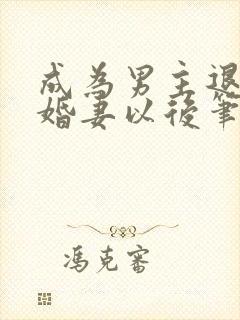 成為男主退
婚妻以後筆
馮克審